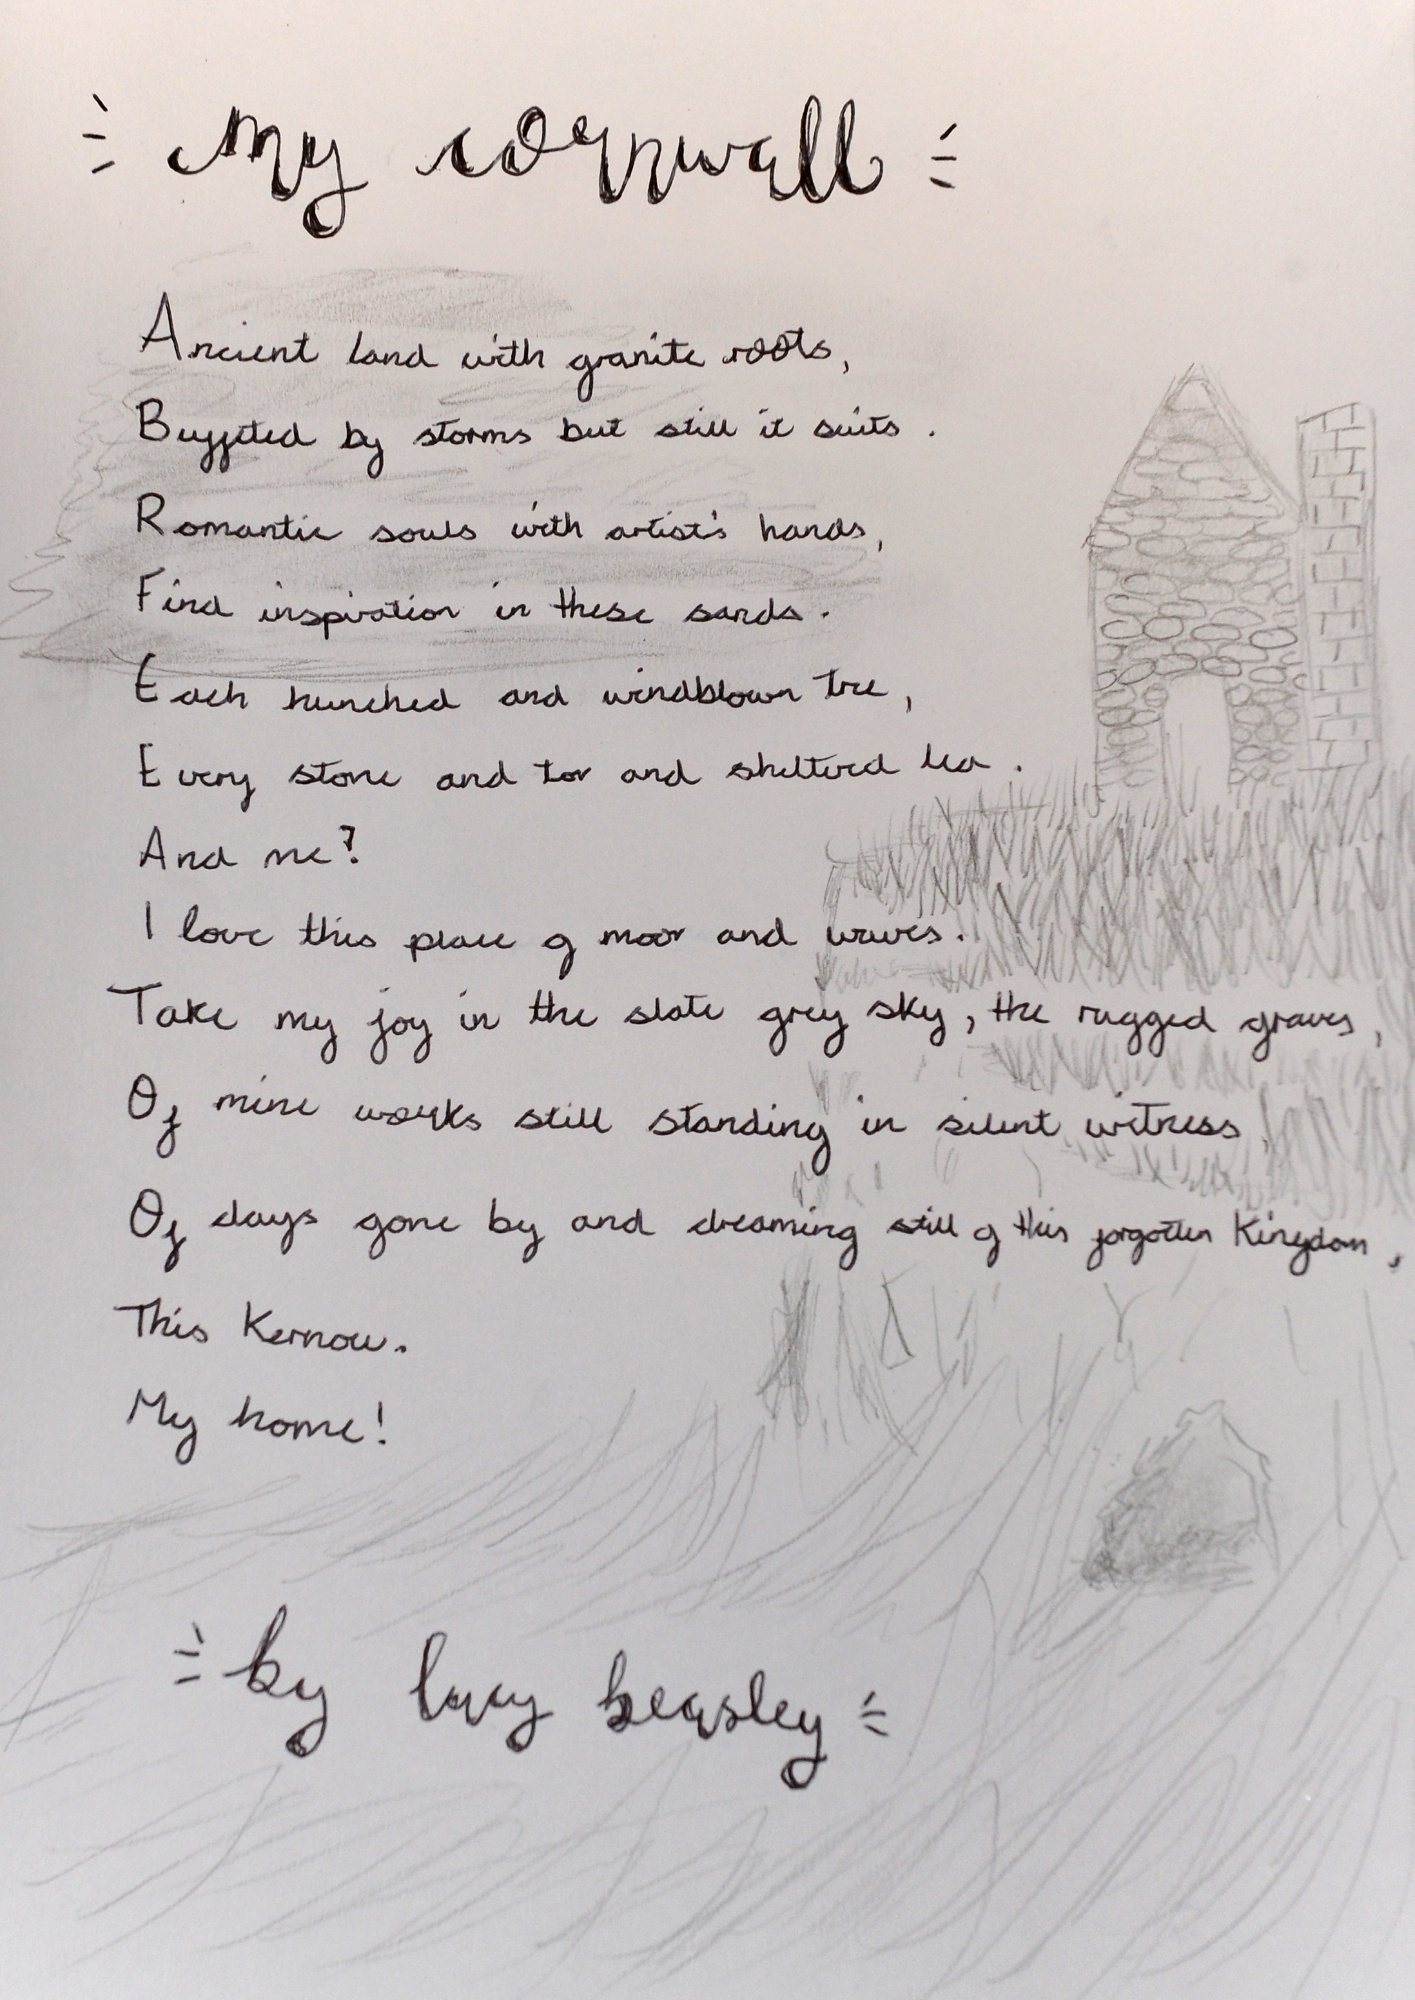 my cornwall
Ancient land with granite roots,
Buffeted by storms but still it suits.
Romantic souls with artist's hands,
Find inspiration in these sands.
Each hunched and windblown tree,
Every stone and tor and sheltered lea.
And me?
I love this place of moor and waves.
Take my joy in the slate grey sky, the rugged graves,
Of mine works still standing in silent witness
Of days gone by and dreaming still of this forgotten Kingdom,
This Kernow.
My home!
by lucy beasley